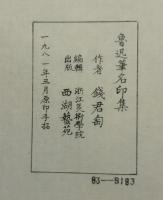 魯迅筆名印集
作者 錢君匋
編輯
出版
浙江美術學院
西湖藝苑
一九八一年三月原印手拓
83—8183